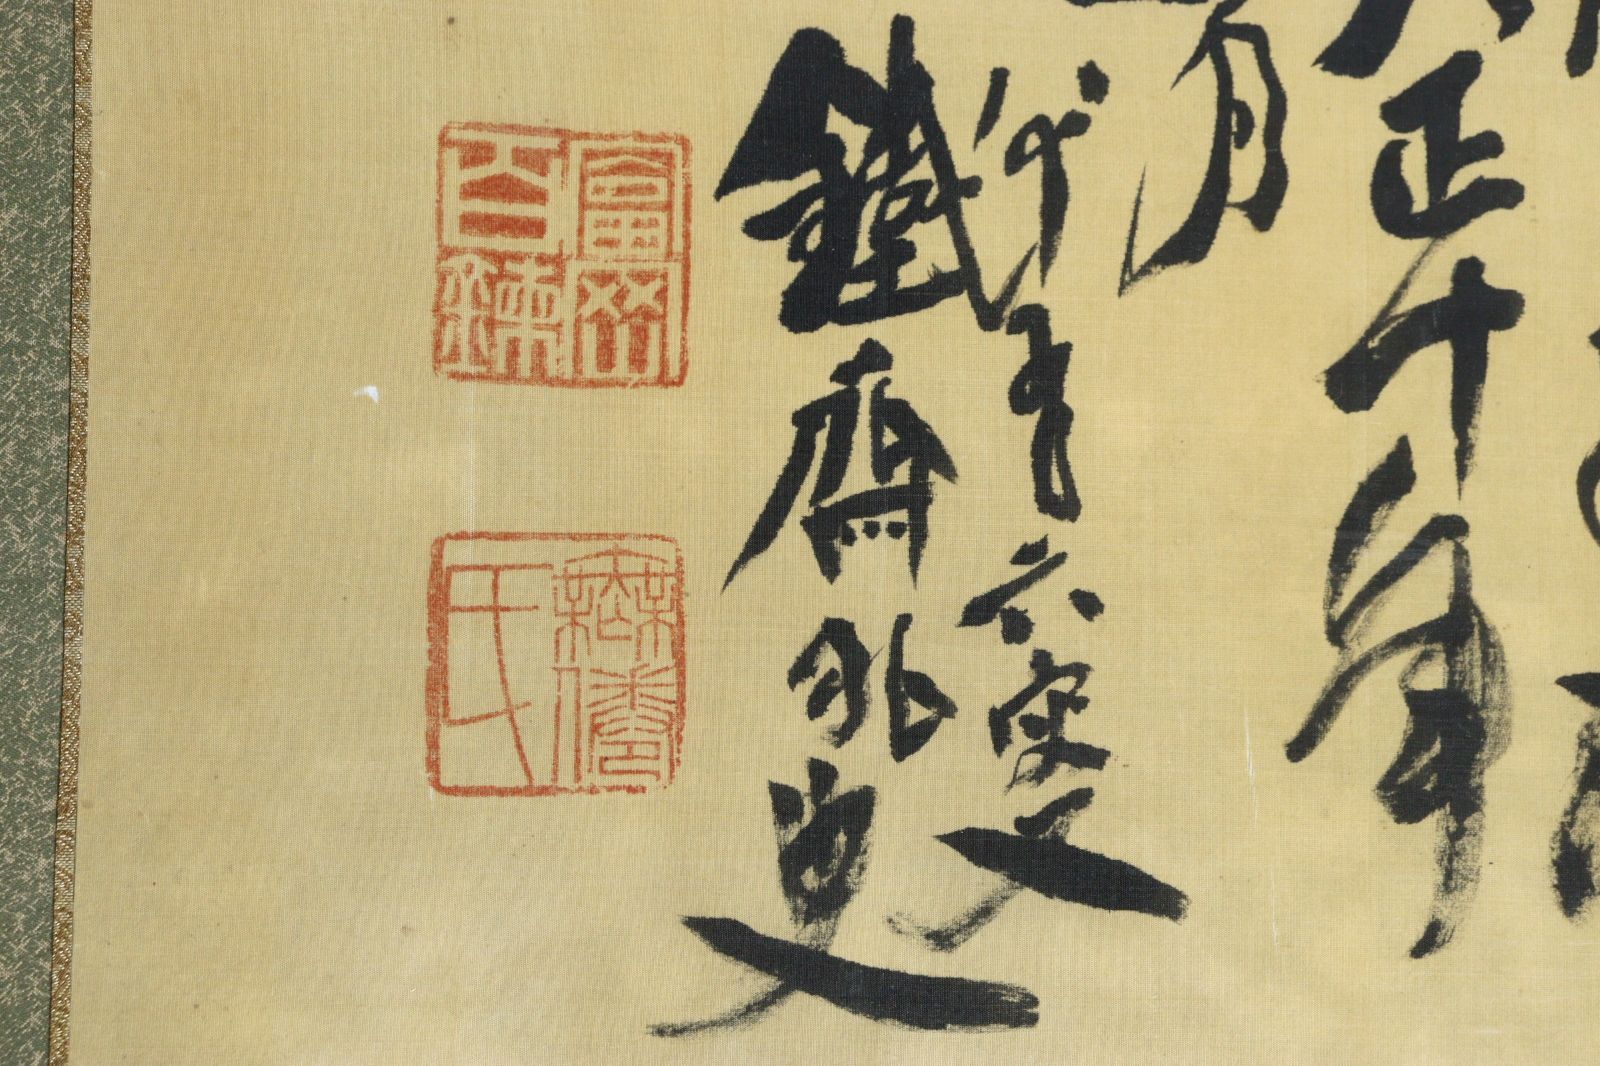 大正十年
月
八十有六叟
鐵齋外史
富岡百錬
無倦氏